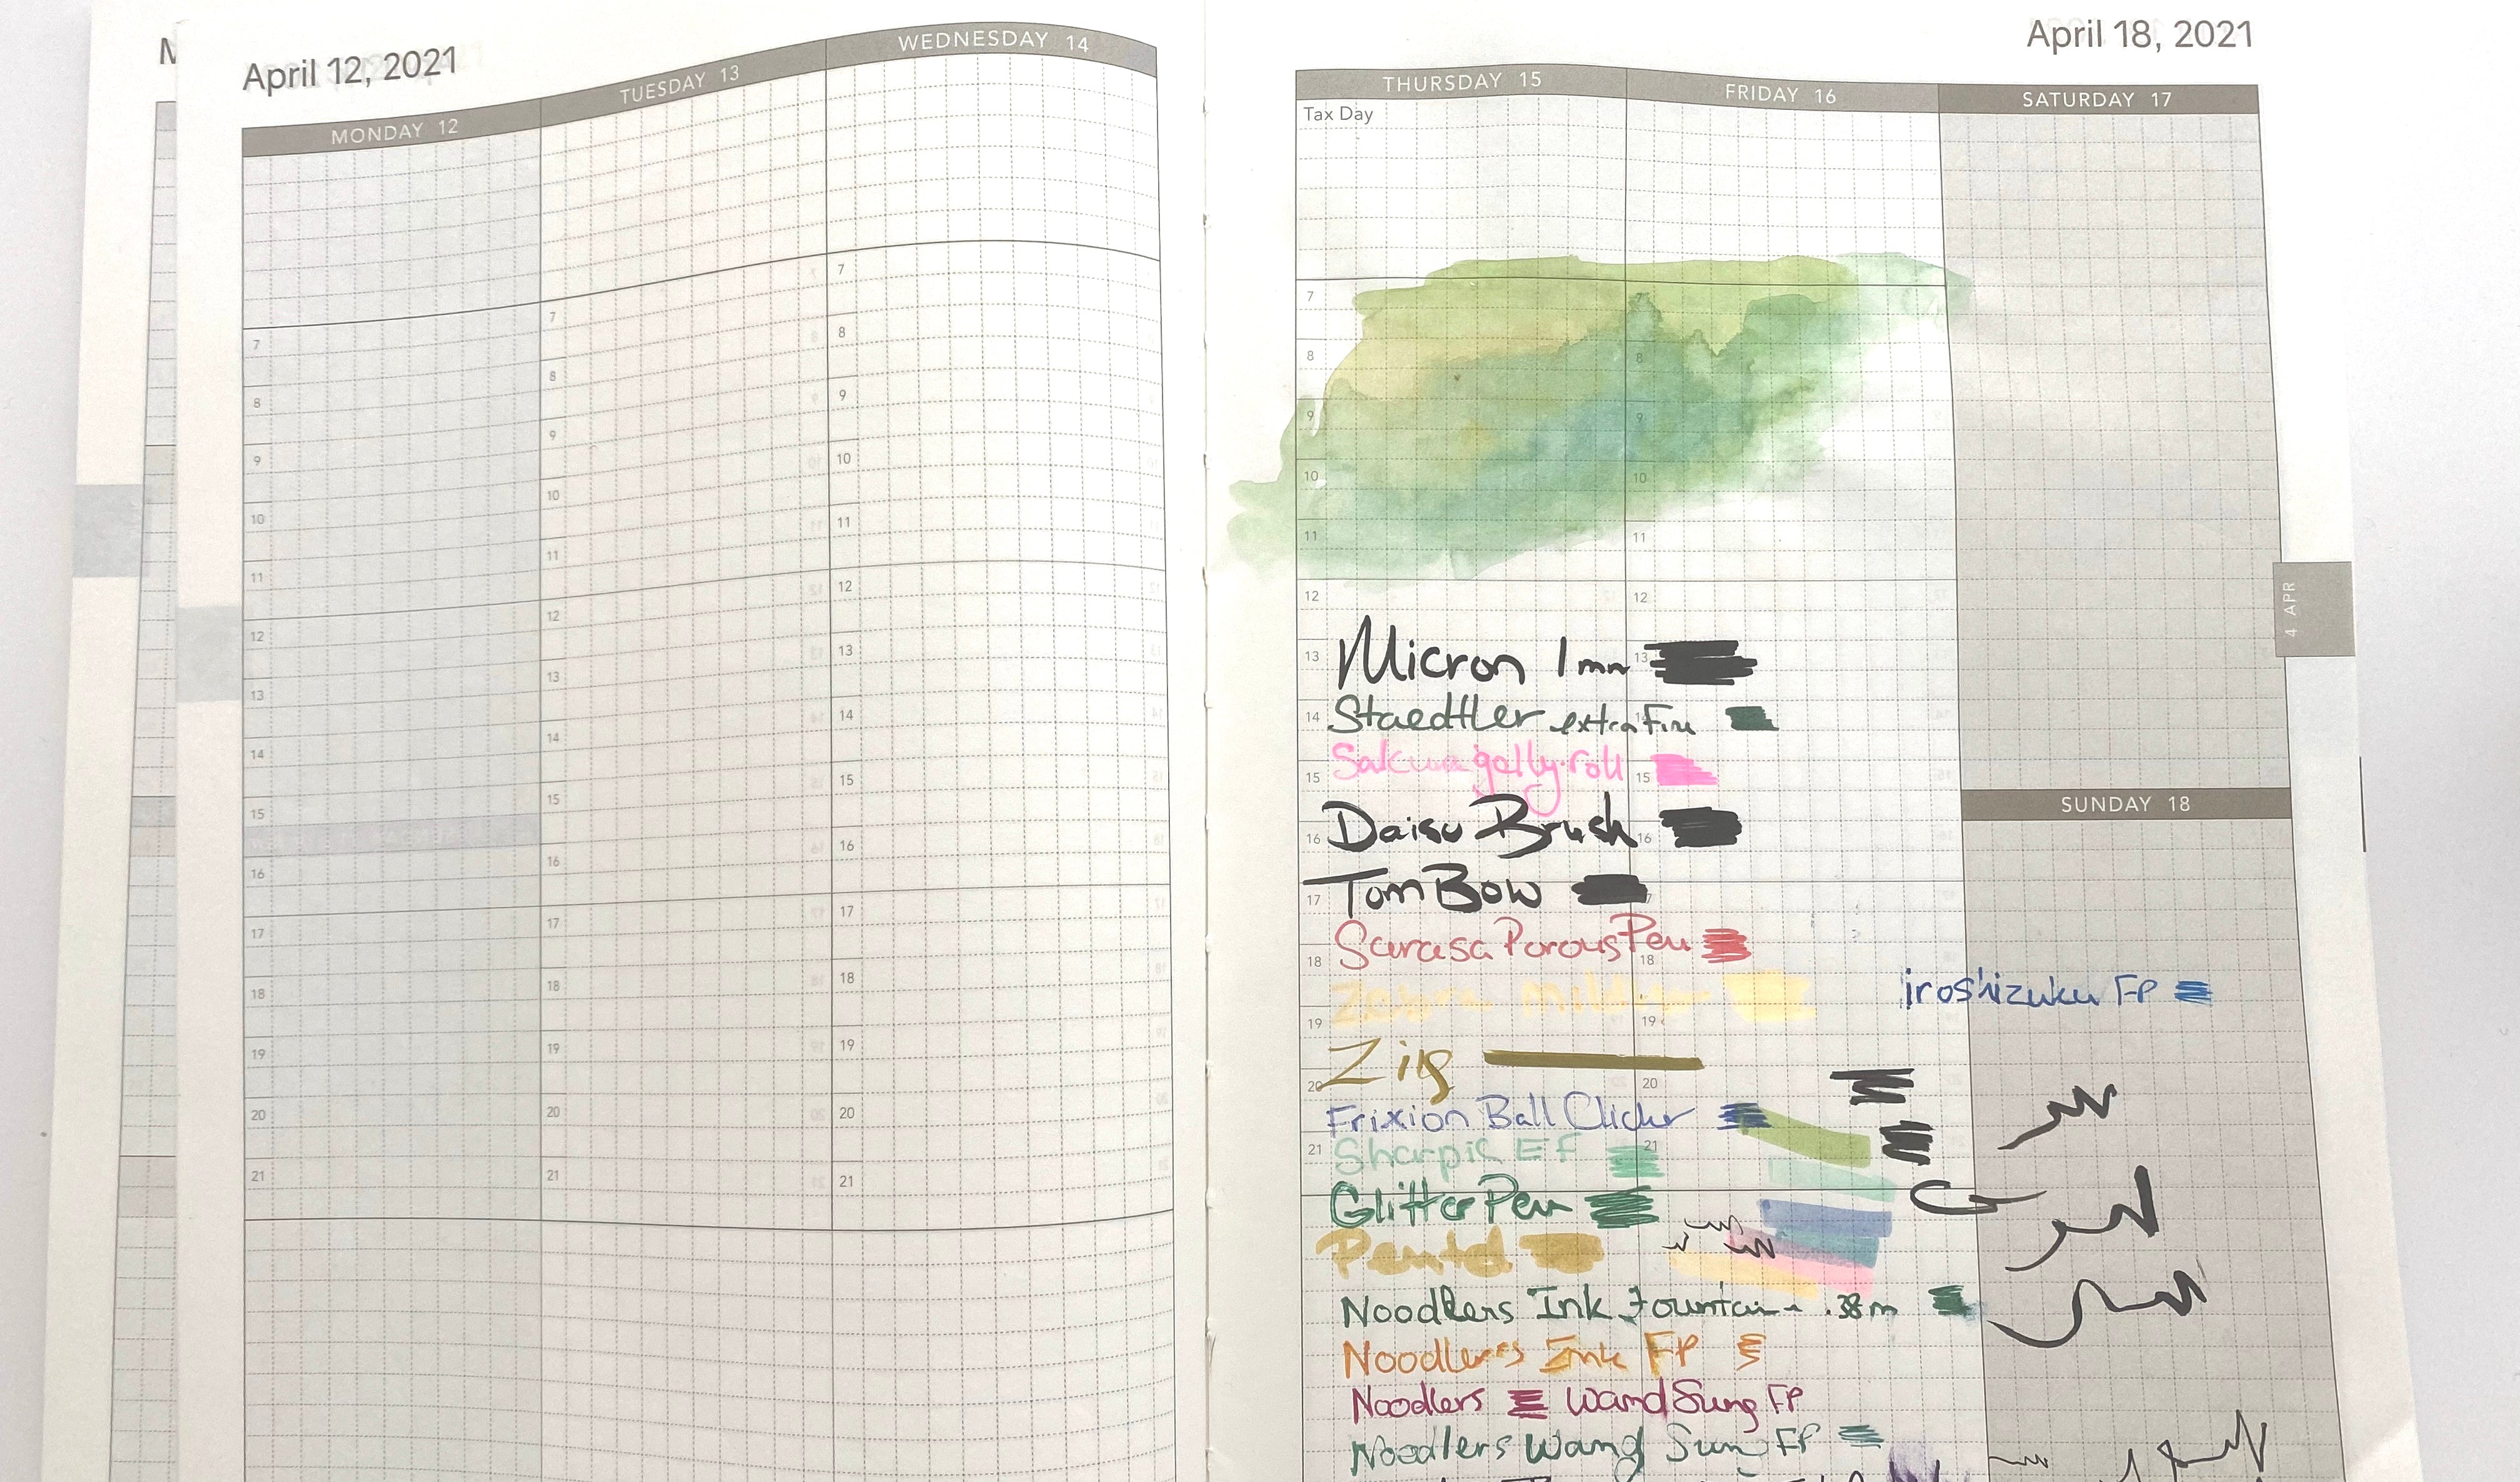 M
April 12, 2021
MONDAY 12
TUESDAY 13
WEDNESDAY 14
7
8
9
10
11
12
13
14
15
16
17
18
19
20
21
7
8
9
10
11
12
13
14
15
16
17
18
19
20
21
7
8
9
10
11
12
13
14
15
16
17
18
19
20
21
April 18, 2021
THURSDAY 15
FRIDAY 16
SATURDAY 17
Tax Day
7
8
9
10
11
12
13
14
15
16
17
18
19
20
21
7
8
9
10
11
12
13
14
15
16
17
18
19
20
21
Micron 1mm
Staedtler extra Fine
Sakura gelly roll
Daiso Brush
TomBow
Sarasa Porous Pen
Zebra Mildliner
Zig
Frixion Ball Clicker
Sharpie EF
Glitter Pen
Pentel
Noodlers Ink Fountain .38m
Noodlers Ink FP
Noodlers Wand Sung FP
Noodlers Wang Sun FP
SUNDAY 18
iroshizuku FP
4 APR